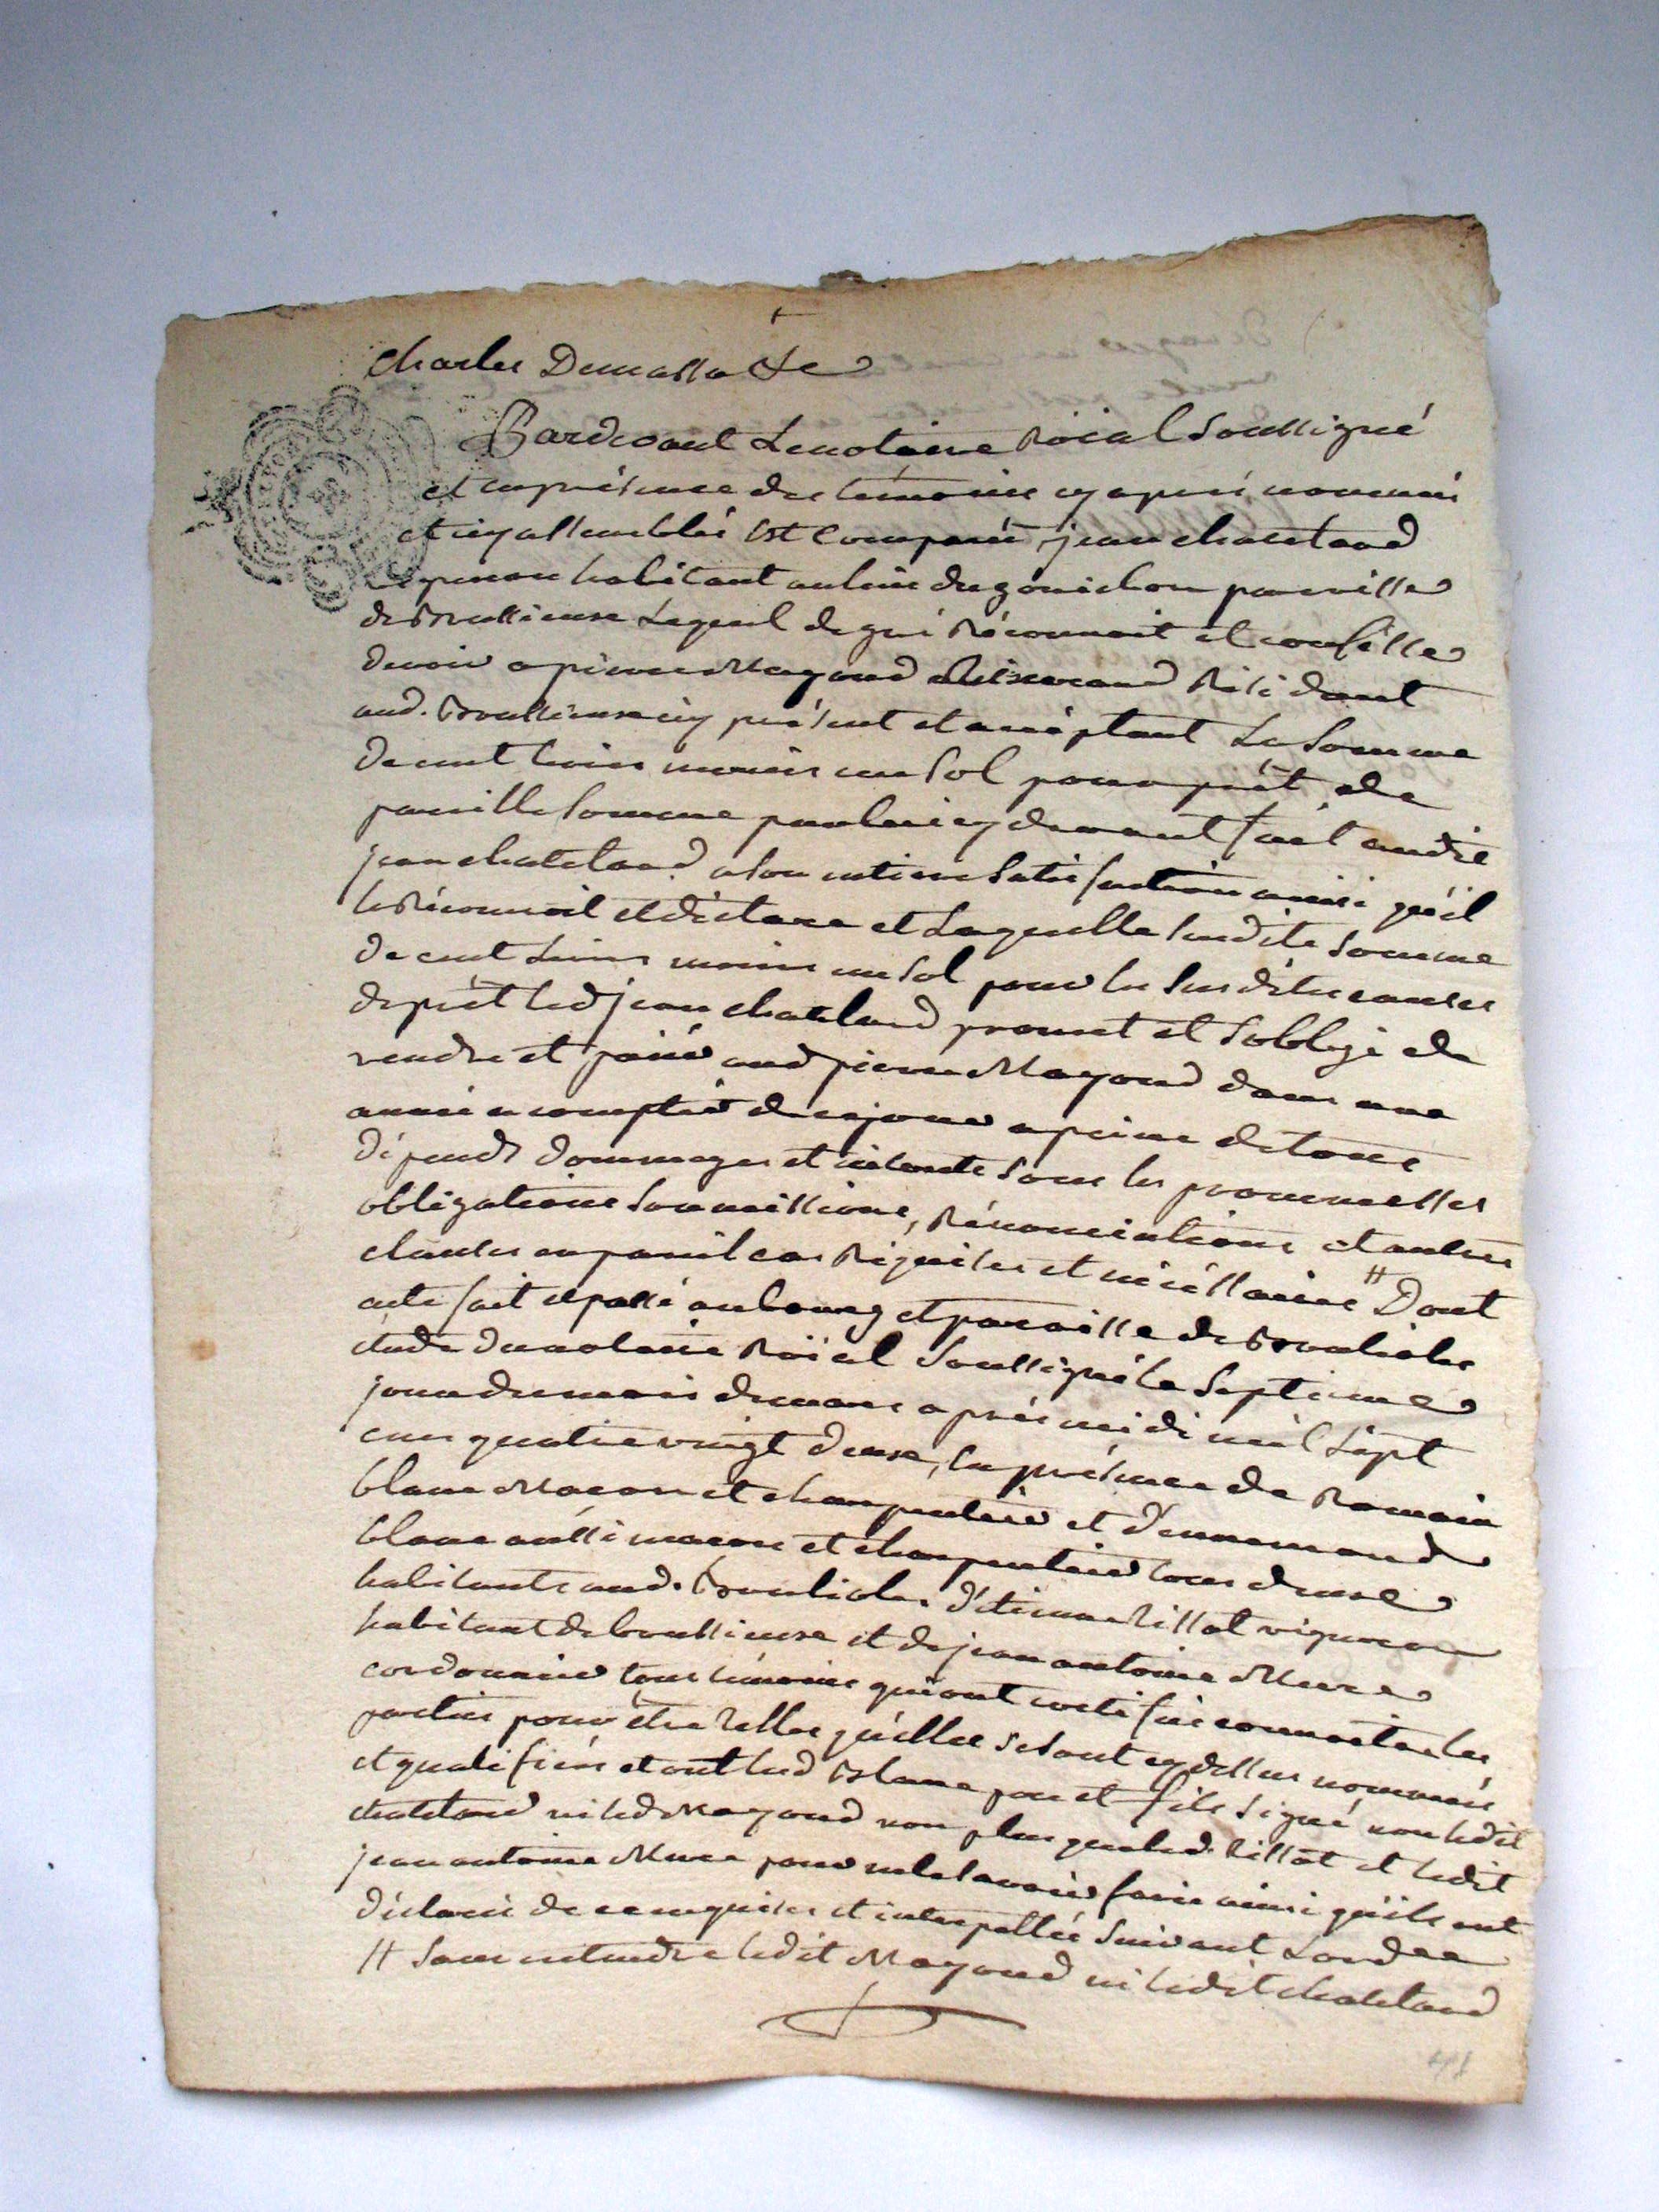 Charles Demasso &c
Pardevant Le notaire Roïal Soussigné
et en présence des témoins cy après nommés
et icy assemblés Est Comparu jean chatelard
vigneron habitant au lieu du gonichon parroisse
de Brussieuse Lequel de gré Réconnoit et confesse
devoir a pierre Mayoud Résidant
aud. Brussieuse icy présent et acceptant La Somme
de cent livres moins un Sol pour prêt de
pareille Somme par lui cy devant fait audit
jean chatelard a son entiere Satisfaction ainsi qu'il
le Réconnoit et déclare et Laquelle Susdite Somme
de cent Livres moins un Sol pour les Susdites causes
de prêt led jean chatelard promet et S'obblige de
rendre et paier aud pierre Mayoud dans une
année a compter de ce jour a peine de tous
dépends dommages et interets Sous les prommesses
obligations Soumissions, Rénonciations et autres
clauses en pareil cas Requises et nécéssaires # Dont
acte fait et passé au bourg et parroisse de
étude du notaire Roïal Soussigné le Septieme
jour du mois de mars après midi mil Sept
cens quatre vingt deuse, En présence de Romain
blanc Macon et charpentier et d'ennemond
blanc aussi macon et charpentier tous deuse
habitants aud. d'étienne vigneron
habitant de brussieuse et de jean antoine Mure
cordonnier tous témoins qui ont certifié connoitre les
parties pour être telles qu'elles se sont cy dessus nommées
et qualifiées et ont Led Blanc pere et fils Signé non ledit
chatelard ni led Mayoud non plus que led. et ledit
jean antoine Mure pour ne le Savoir faire ainsi qu'ils ont
déclaré de ce enquises et interpellés Suivant Lordce
# Sans entendre ledit Mayoud ni ledit chatelard